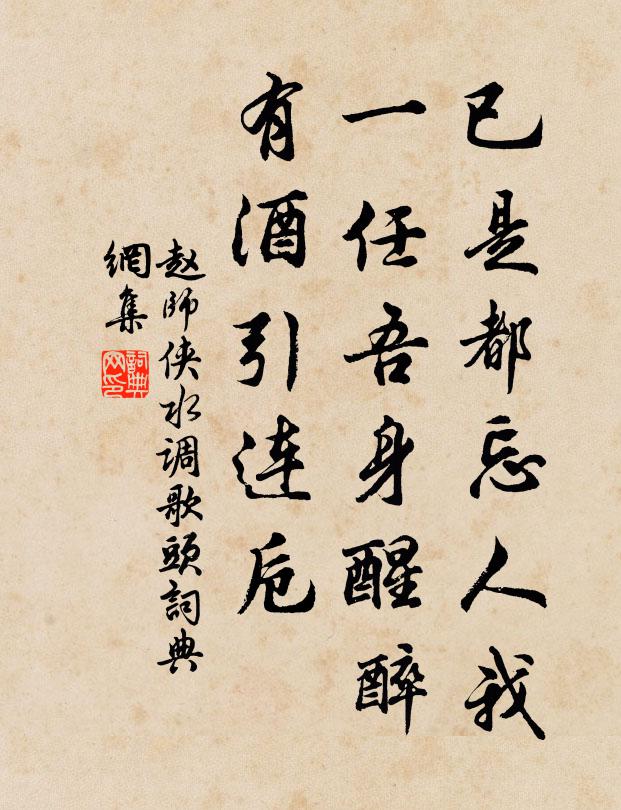 已是都忘人我
一任吾身醒醉
有酒引连卮
赵師侠水调歌頭詞典
網集
詞典
网印